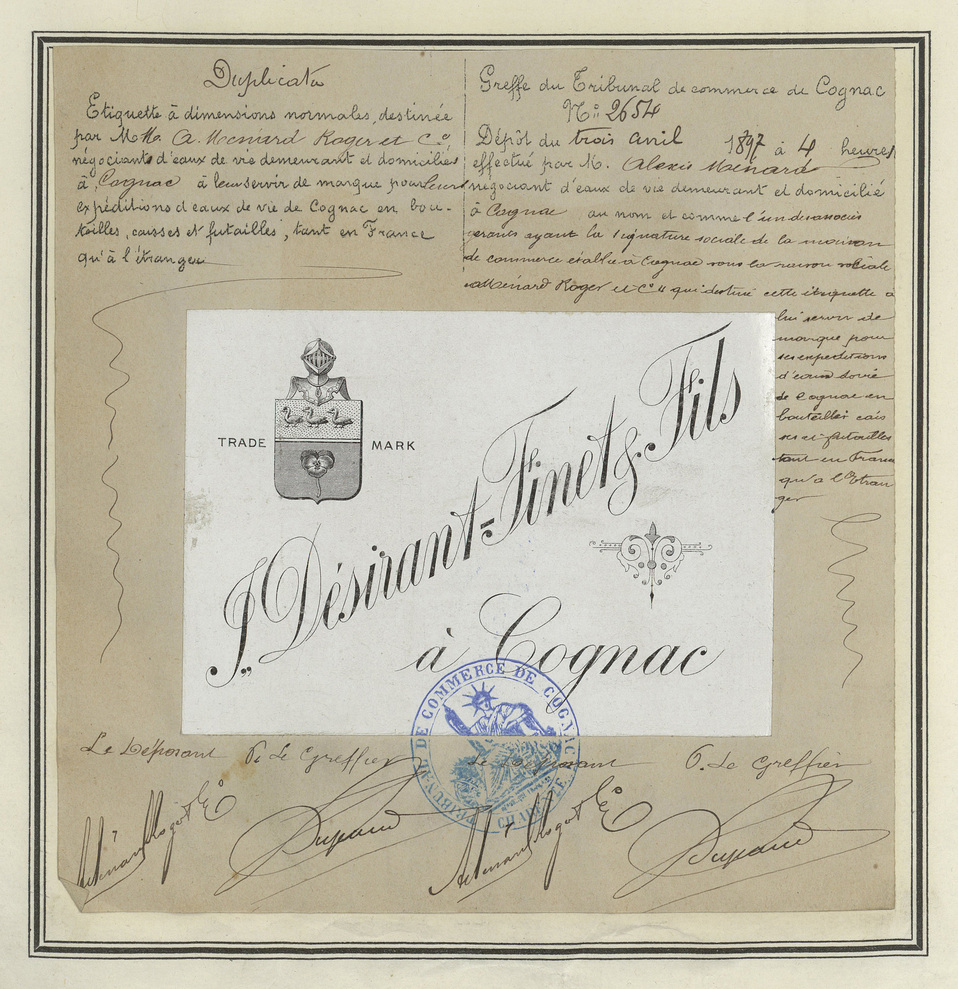 Duplicata
Etiquette à dimensions normales, destinée
par M.M. A. Menard Roger et Cie
négociants d'eaux de vie demeurant et domiciliés
à Cognac à leur servir de marque pour leurs
expéditions d'eaux de vie de Cognac en bou-
teilles, caisses et futailles, tant en France
qu'à l'étranger
Greffe du Tribunal de commerce de Cognac
No: 2654
Dépôt du trois avril 1897 à 4 heures
effectué par M. Alexis Menard
négociant d'eaux de vie demeurant et domicilié
à Cognac au nom et comme l'un des associés
gérants ayant la signature sociale de la maison
de commerce établie à Cognac sous la raison sociale
"A Menard Roger et Co" qui destine cette étiquette à
lui servir de
marque pour
ses expéditions
d'eaux de vie
de Cognac en
bouteilles cais
ses et futailles
tant en France
qu'à l'Etran
ger
TRADE MARK
J. Désirant-Finet & Fils
à Cognac
TRIBUNAL DE COMMERCE DE COGNAC
CHARENTE
Le Déposant P. Le Greffier Le Déposant P. Le Greffier